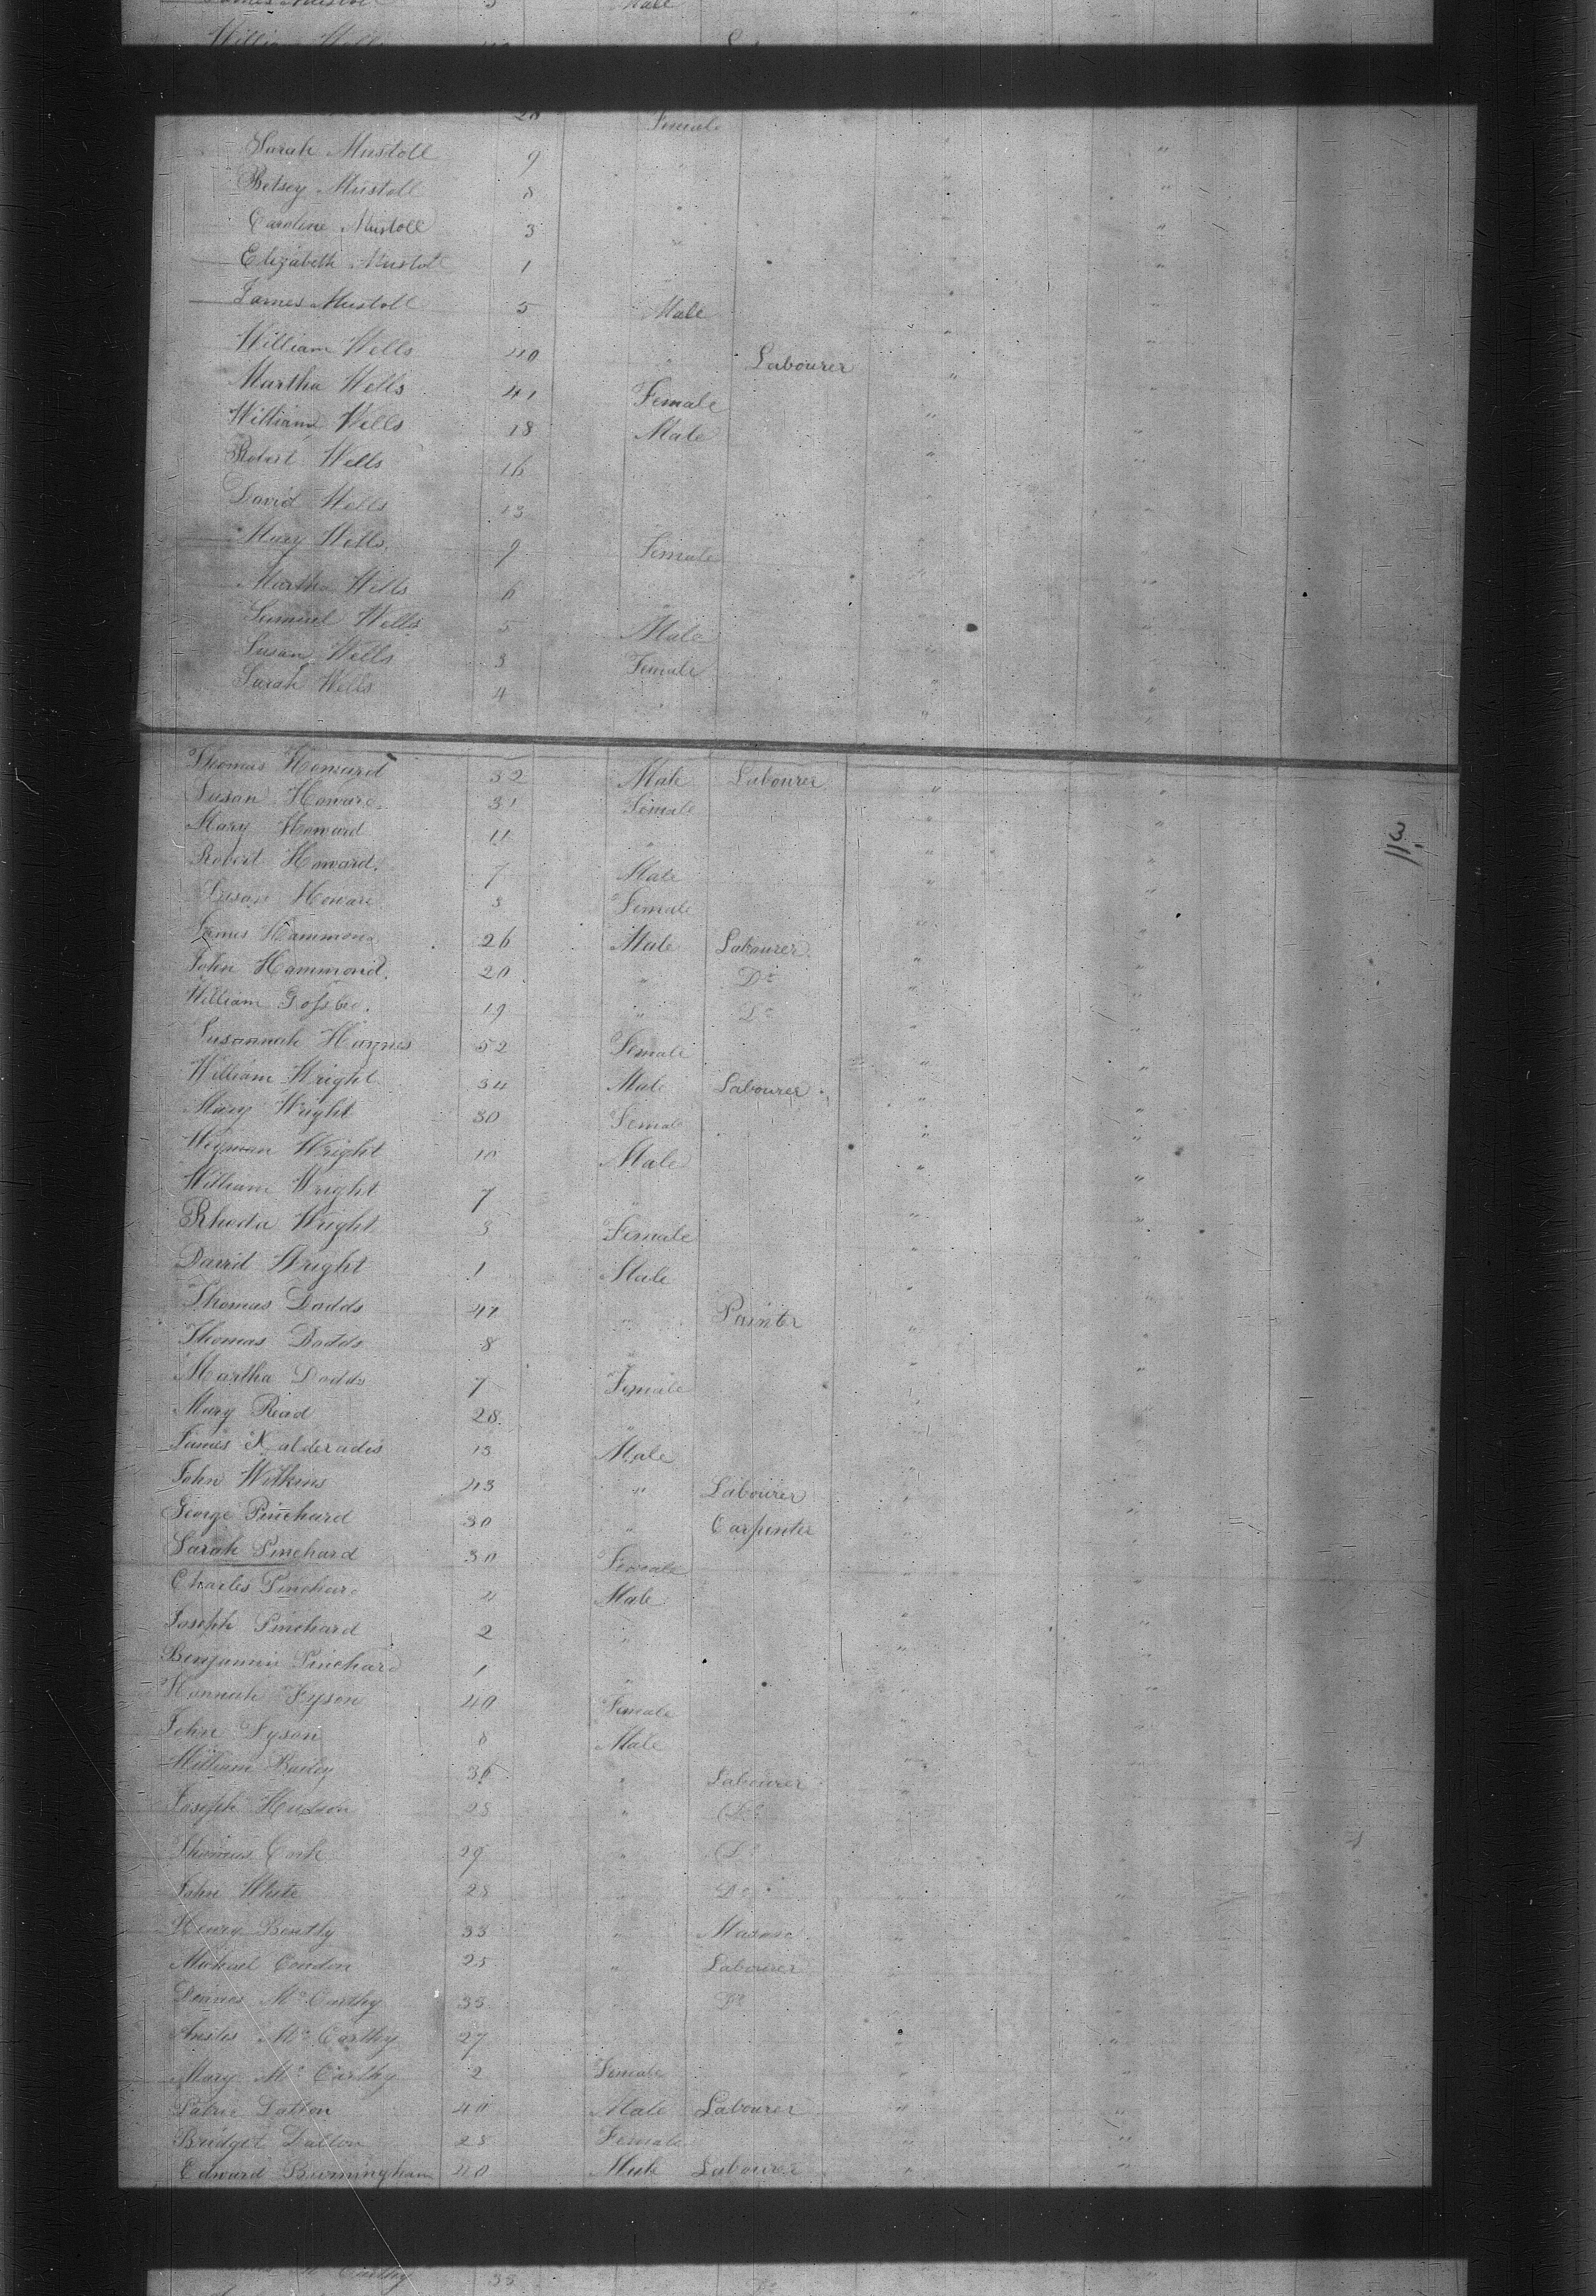 28 Female
Sarah Mustoll 9 " " "
Betsey Mustoll 8 " " "
Caroline Mustoll 3 " " "
Elizabeth Mustoll 1 " " "
James Mustoll 5 Male " "
William Wells 40 " Labourer " "
Martha Wells 41 Female " "
William Wells 18 Male " "
Robert Wells 16 " "
David Wells 13 " "
Mary Wells 9 Female " "
Martha Wells 6 " " "
Samuel Wells 5 Male " "
Susan Wells 3 Female " "
Sarah Wells 4 " " "
Thomas Howard 32 Male Labourer " "
Susan Howard 31 Female " "
Mary Howard 11 " " "
Robert Howard 7 Male " "
Susan Howard 3 Female " "
James Hammond 26 Male Labourer " "
John Hammond 20 " Do " "
William 19 " Do " "
Susannah Haynes 52 Female " "
William Wright 34 Male Labourer " "
Mary Wright 30 Female " "
Wright 10 Male " "
William Wright 7 " " "
Rhoda Wright 3 Female " "
David Wright 1 Male " "
Thomas Dodds 47 " Painter " "
Thomas Dodds 8 " " "
Martha Dodds 7 Female " "
Mary Read 28 " " "
James 13 Male " "
John Wilkins 43 " Labourer " "
George Pinchard 30 " Carpenter " "
Sarah Pinchard 30 Female " "
Charles Pinchard 4 Male " "
Joseph Pinchard 2 " " "
Benjamin Pinchard 1 " " "
Hannah Fyson 40 Female " "
John Fyson 8 Male " "
William Bailey 36 " Labourer " "
Joseph Hudson 28 " Do " "
Thomas Cook 29 " Do " "
John White 28 " Do " "
Henry Bently 33 " " "
Michael Condon 25 " Labourer " "
McCarthy 35 " Do " "
McCarthy 27 " "
Mary McCarthy 2 Female " "
Dalton 40 Male Labourer " "
Bridget Dalton 25 Female " "
Edward Burmingham 40 Male Labourer " "
113